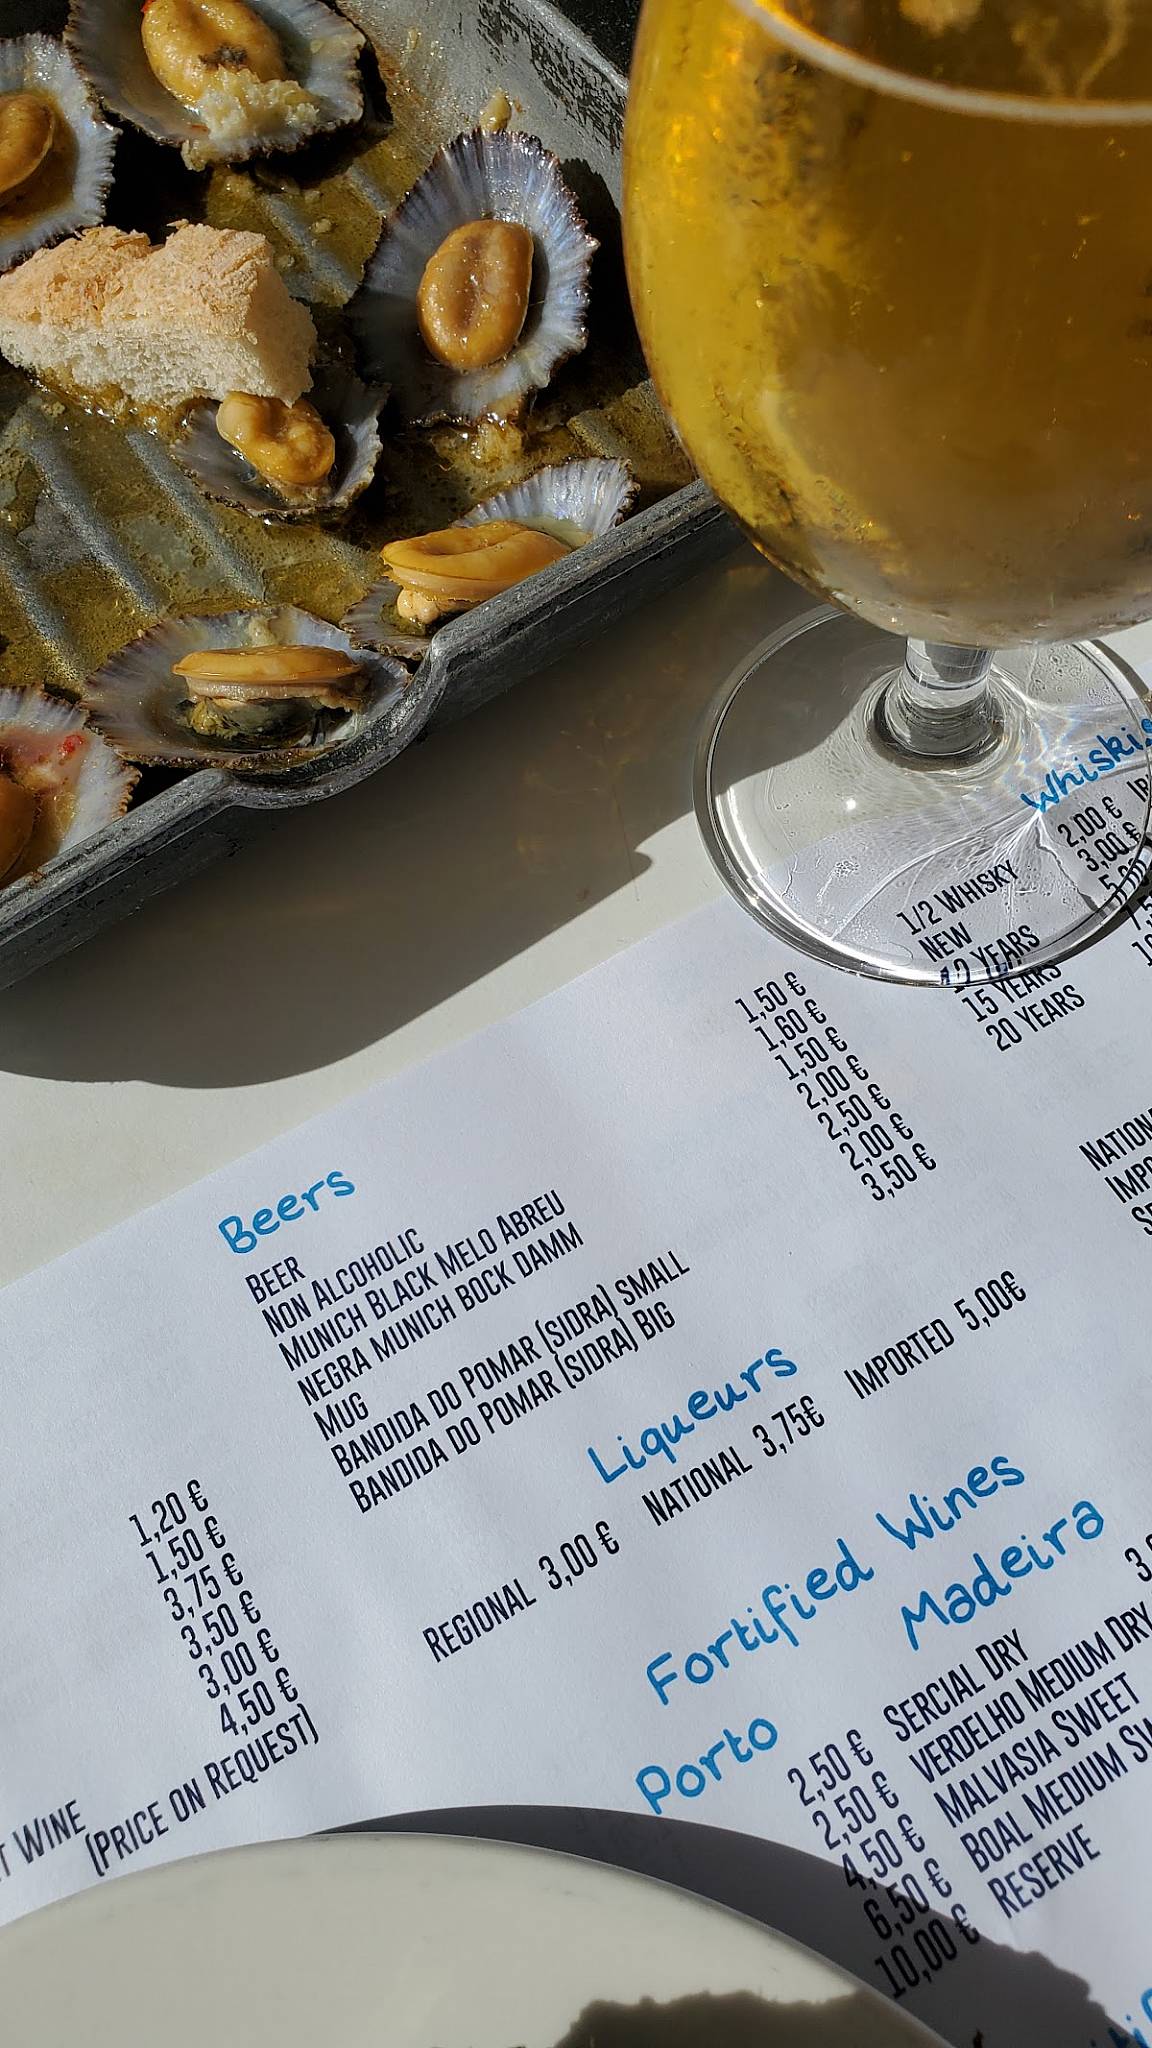 Whiskies
1/2 WHISKY 2,00 €
NEW 3,00 €
12 YEARS
15 YEARS
20 YEARS
Beers
BEER 1,50 €
NON ALCOHOLIC 1,60 €
MUNICH BLACK MELO ABREU 1,50 €
NEGRA MUNICH BOCK DAMM 2,00 €
MUG 2,50 €
BANDIDA DO POMAR (SIDRA) SMALL 2,00 €
BANDIDA DO POMAR (SIDRA) BIG 3,50 €
Liqueurs
REGIONAL 3,00 € NATIONAL 3,75€ IMPORTED 5,00€
Fortified Wines
Porto Madeira
2,50 € SERCIAL DRY
2,50 € VERDELHO MEDIUM DRY
4,50 € MALVASIA SWEET
6,50 € BOAL MEDIUM
10,00 € RESERVE
1,20 €
1,50 €
3,75 €
3,50 €
3,00 €
4,50 €
WINE (PRICE ON REQUEST)